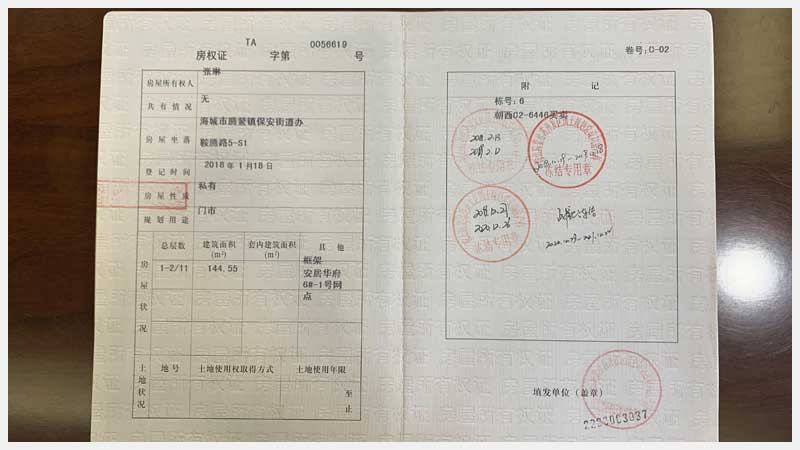 TA 0056619
房权证 字第 号
房屋所有权人 张琳
共有情况 无
房屋坐落 海城市腾鳌镇保安街道办
鞍腾路5-S1
登记时间 2018年1月18日
房屋性质 私有
规划用途 门市
房屋状况
总层数 建筑面积(m²) 套内建筑面积(m²) 其他
1-2/11 144.55 框架
安居华府
6#-1号网
点
土地状况
地号 土地使用权取得方式 土地使用年限
至
止
卷号:C-02
附 记
栋号:6
朝西02-6446买卖
冻结专用章
填发单位(盖章)